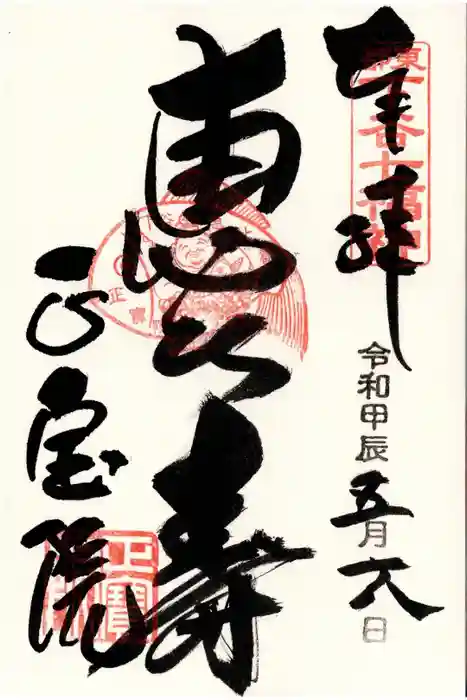 奉拝
令和甲辰五月六日
恵比寿
正宝院
正寶